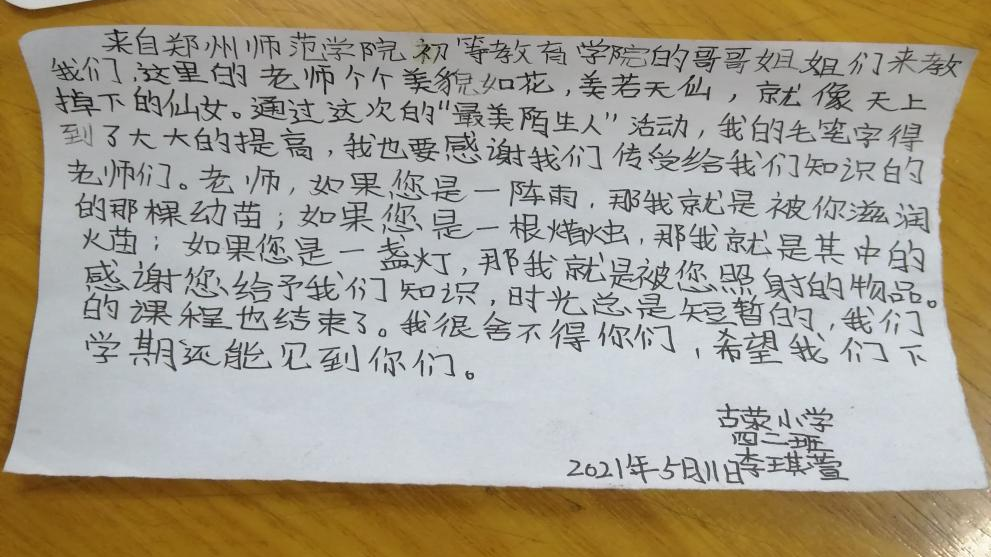 来自郑州师范学院初等教育学院的哥哥姐姐们来教
我们,这里的老师个个美貌如花,美若天仙,就像天上
掉下的仙女。通过这次的“最美陌生人”活动,我的毛笔字得
到了大大的提高,我也要感谢我们传受给我们知识的
老师们。老师,如果您是一阵雨,那我就是被你滋润
的那棵幼苗;如果您是一根熸烛,那我就是其中的
火苗;如果您是一盏灯,那我就是被您照射的物品。
感谢您给予我们知识,时光总是短暂的,我们
的课程也结束了。我很舍不得你们,希望我们下
学期还能见到你们。
古荥小学
四二班
李琪萱
2021年5月11日